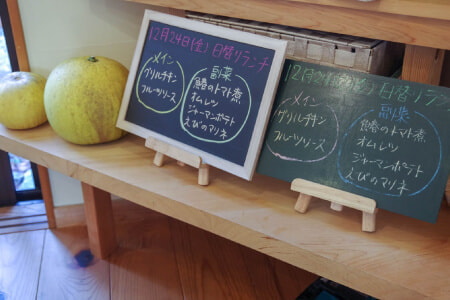 12月24日(金) 日替リランチ
メイン
グリルチキン
フルーツソース
副菜
鰆のトマト煮
オムレツ
ジャーマンポテト
えびのマリネ
12月24日(金) 日替リラン
メイン
グリルチキン
フルーツソース
副菜
鰆のトマト煮
オムレツ
ジャーマンポテト
えびのマリネ